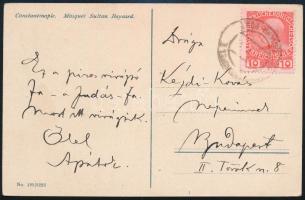 Constantinople. Mosquée Sultan Bayazed.
Ez a piros virágú
fa – a Judás-fa.
Most itt virágzik.
Ölel
Apátok.
Drága
Kézdi-Kovács
Népeimnek
Budapest
II. Török u. 8
10 10
No. 195/31225